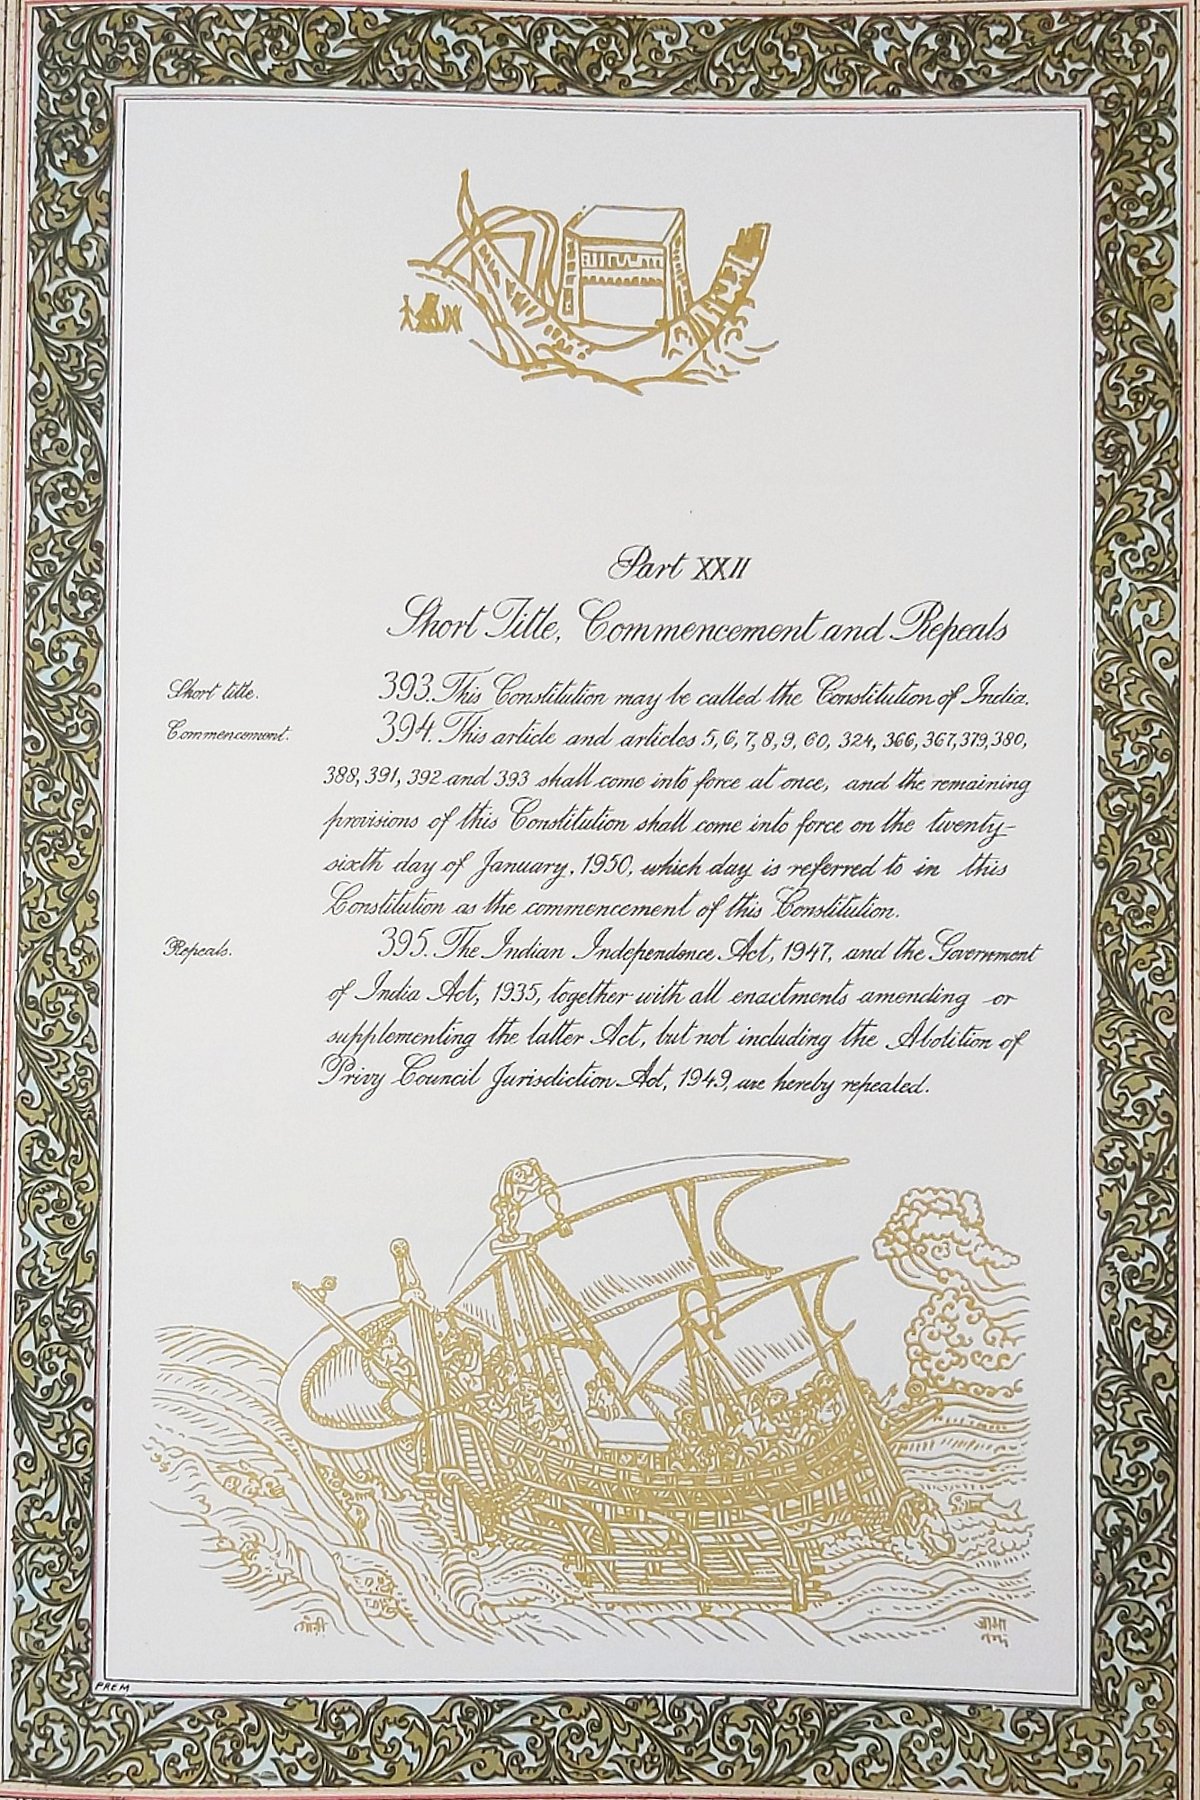 Part XXII
Short Title, Commencement and Repeals
Short title. 393. This Constitution may be called the Constitution of India.
Commencement. 394. This article and articles 5, 6, 7, 8, 9, 60, 324, 366, 367, 379, 380,
388, 391, 392 and 393 shall come into force at once, and the remaining
provisions of this Constitution shall come into force on the twenty-
sixth day of January, 1950, which day is referred to in this
Constitution as the commencement of this Constitution.
Repeals. 395. The Indian Independence Act, 1947, and the Government
of India Act, 1935, together with all enactments amending or
supplementing the latter Act, but not including the Abolition of
Privy Council Jurisdiction Act, 1949, are hereby repealed.
PREM